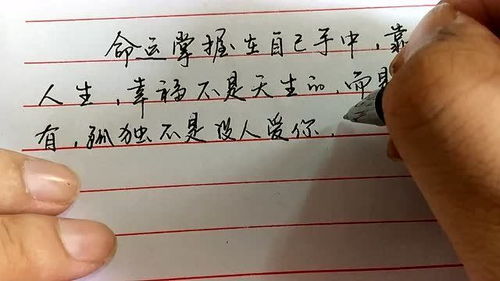 命运掌握在自己手中，靠
人生，幸福不是天生的，而是
有，孤独不是没人爱你，